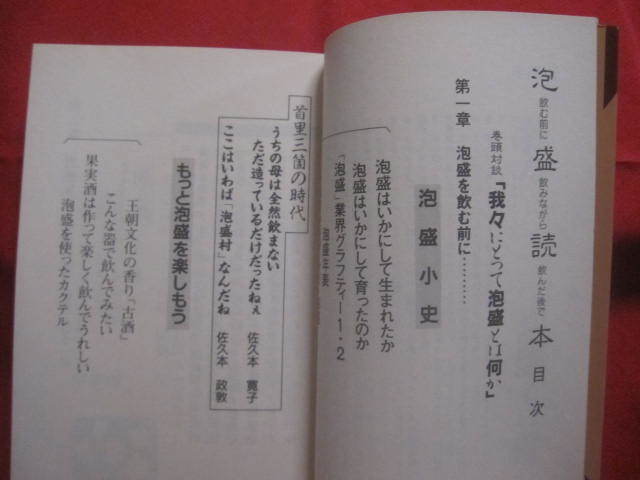 泡飲む前に盛飲みながら読飲んだ後で本目次
巻頭対談「我々にとって泡盛とは何か」
第一章 泡盛を飲む前に………
泡盛小史
泡盛はいかにして生まれたか
泡盛はいかにして育ったのか
「泡盛」業界グラフティー1・2
泡盛年表
首里三箇の時代
うちの母は全然飲まない
ただ造っているだけだったねぇ 佐久本 寛子
ここはいわば「泡盛村」なんだね 佐久本 政敦
もっと泡盛を楽しもう
王朝文化の香り「古酒」
こんな器で飲んでみたい
果実酒は作って楽しく飲んでうれしい
泡盛を使ったカクテル